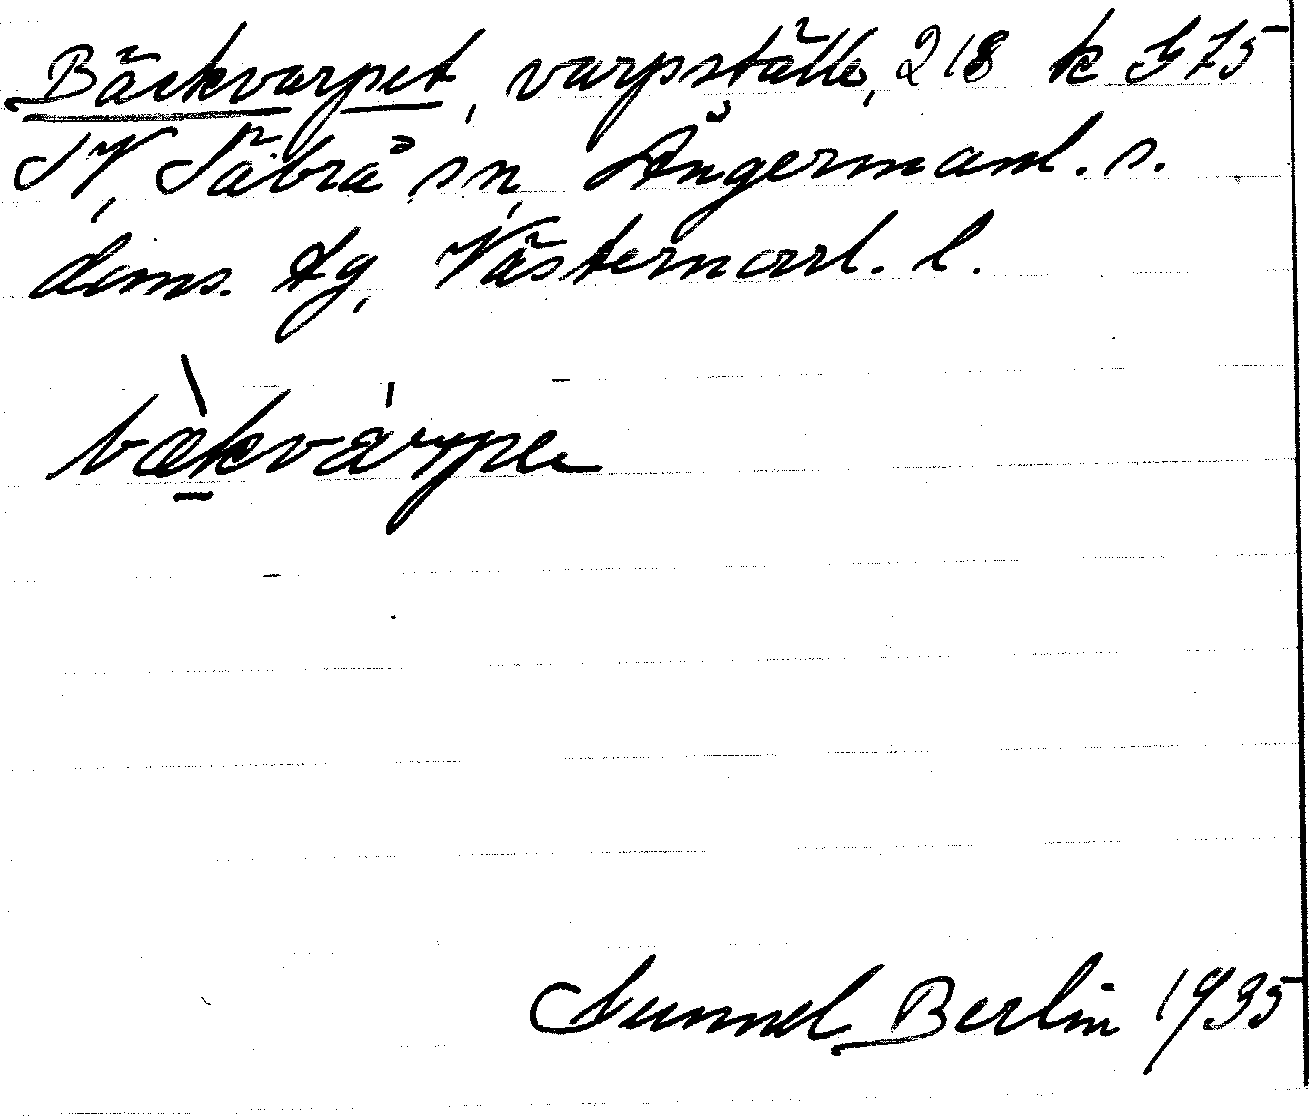 Bäckvarpet, varpställe, 218 k G 75
SV, Säbrå sn, Ångermanl. s.
doms. tg, Västernorrl. l.
bæ̀kvárpe
Gunnel Berlin 1935